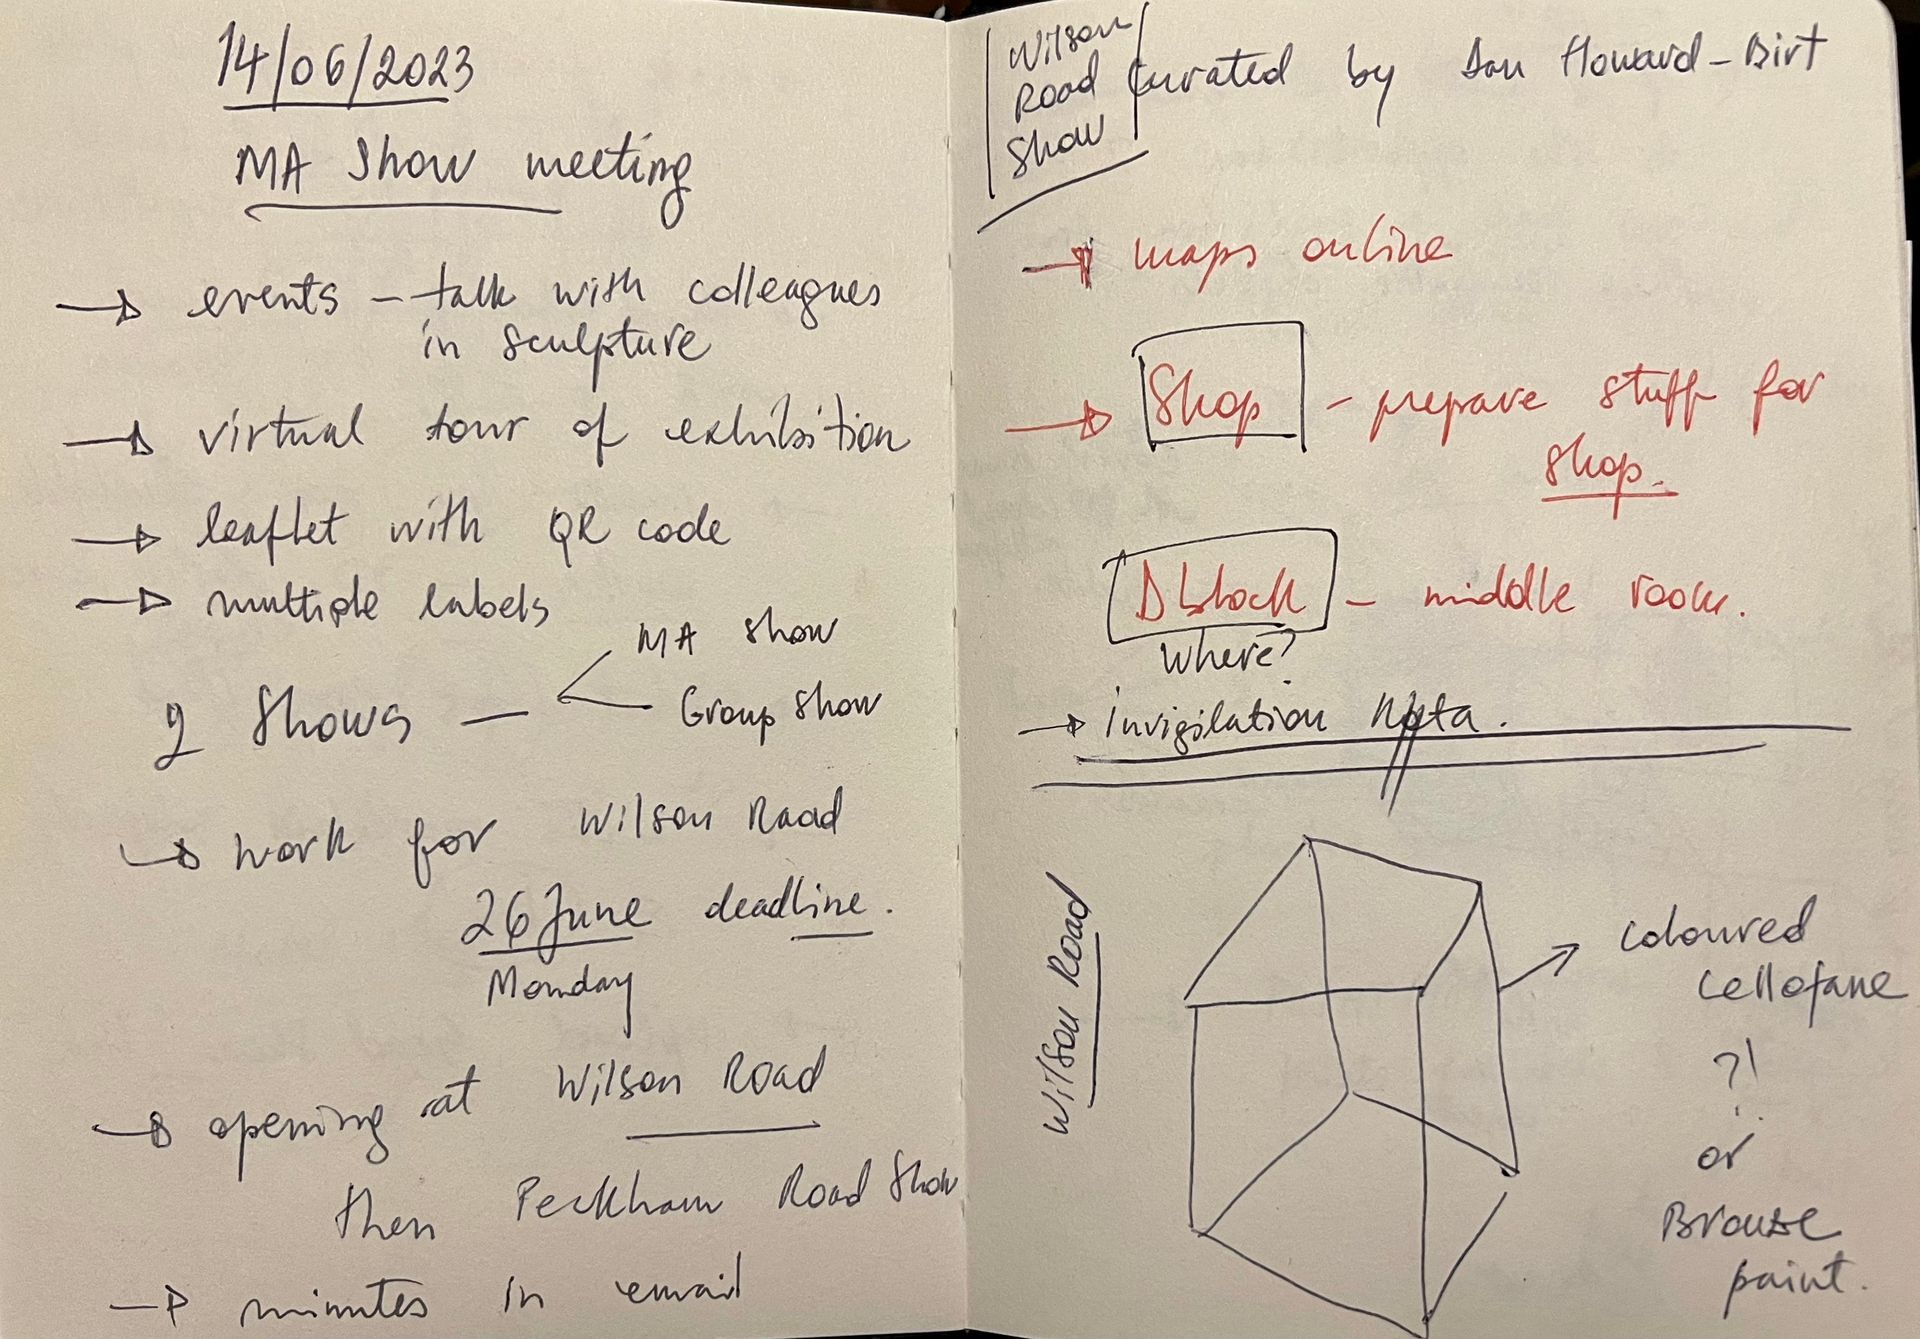 14/06/2023
MA Show meeting
→ events – talk with colleagues
in sculpture
→ virtual tour of exhibition
→ leaflet with QR code
→ multiple labels
2 Shows —
MA show
Group Show
→ work for Wilson Road
26 June deadline.
Monday
→ opening at Wilson Road
then Peckham Road Show
→ minutes in email
Wilson
Road
Show
Curated by Dan Howard-Birt
→ maps online
→ Shop – prepare stuff for
shop.
D block – middle room.
Where?
→ invigilation Rota.
Wilson Road
→ coloured
cellofane
?!
or
Bronze
paint.